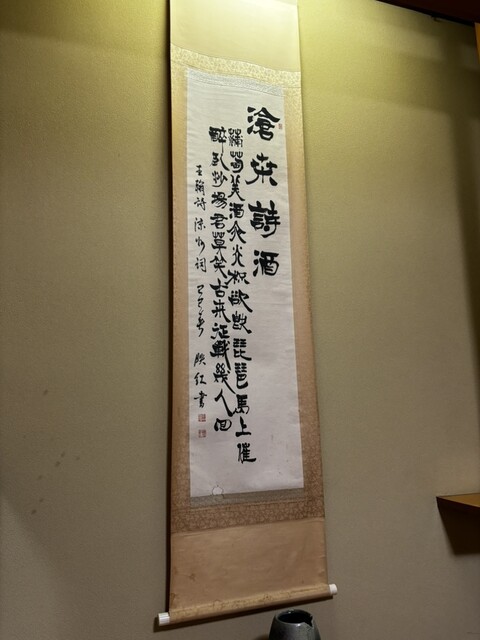 滄桒詩酒
蒲萄美酒夜光杯欲飲琵琶馬上催
醉臥沙場君莫笑古来征戰幾人回
王翰詩涼州詞己巳春映红書